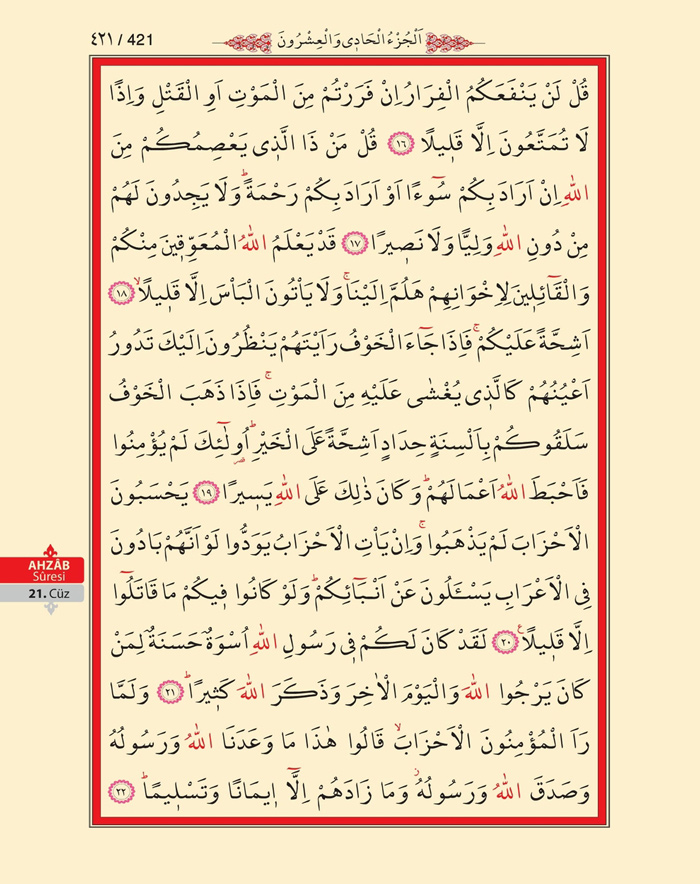 ٤٢١ / 421
اَلْجُزْءُ الْحَادِى وَالْعِشْرُونَ
قُلْ لَنْ يَنْفَعَكُمُ الْفِرَارُ اِنْ فَرَرْتُمْ مِنَ الْمَوْتِ اَوِ الْقَتْلِ وَاِذًا
لَا تُمَتَّعُونَ اِلَّا قَلٖيلًا ﴿١٦﴾ قُلْ مَنْ ذَا الَّذٖى يَعْصِمُكُمْ مِنَ
اللّٰهِ اِنْ اَرَادَ بِكُمْ سُٓوءًا اَوْ اَرَادَ بِكُمْ رَحْمَةًؕ وَلَا يَجِدُونَ لَهُمْ
مِنْ دُونِ اللّٰهِ وَلِيًّا وَلَا نَصٖيرًا ﴿١٧﴾ قَدْ يَعْلَمُ اللّٰهُ الْمُعَوِّقٖينَ مِنْكُمْ
وَالْقَٓائِلٖينَ لِاِخْوَانِهِمْ هَلُمَّ اِلَيْنَاۚ وَلَا يَاْتُونَ الْبَاْسَ اِلَّا قَلٖيلًاۙ ﴿١٨﴾
اَشِحَّةً عَلَيْكُمْۚ فَاِذَا جَٓاءَ الْخَوْفُ رَاَيْتَهُمْ يَنْظُرُونَ اِلَيْكَ تَدُورُ
اَعْيُنُهُمْ كَالَّذٖى يُغْشٰى عَلَيْهِ مِنَ الْمَوْتِۚ فَاِذَا ذَهَبَ الْخَوْفُ
سَلَقُوكُمْ بِاَلْسِنَةٍ حِدَادٍ اَشِحَّةً عَلَى الْخَيْرِؕ اُو۬لٰٓئِكَ لَمْ يُؤْمِنُوا
فَاَحْبَطَ اللّٰهُ اَعْمَالَهُمْؕ وَكَانَ ذٰلِكَ عَلَى اللّٰهِ يَسٖيرًا ﴿١٩﴾ يَحْسَبُونَ
الْاَحْزَابَ لَمْ يَذْهَبُواۚ وَاِنْ يَاْتِ الْاَحْزَابُ يَوَدُّوا لَوْ اَنَّهُمْ بَادُونَ
فِى الْاَعْرَابِ يَسْـَٔلُونَ عَنْ اَنْـبَٓائِكُمْؕ وَلَوْ كَانُوا فٖيكُمْ مَا قَاتَلُٓوا
اِلَّا قَلٖيلًاࣖ ﴿٢٠﴾ لَقَدْ كَانَ لَكُمْ فٖى رَسُولِ اللّٰهِ اُسْوَةٌ حَسَنَةٌ لِمَنْ
كَانَ يَرْجُوا اللّٰهَ وَالْيَوْمَ الْاٰخِرَ وَذَكَرَ اللّٰهَ كَثٖيرًاؕ ﴿٢١﴾ وَلَمَّا
رَاَ الْمُؤْمِنُونَ الْاَحْزَابَۙ قَالُوا هٰذَا مَا وَعَدَنَا اللّٰهُ وَرَسُولُهُ
وَصَدَقَ اللّٰهُ وَرَسُولُهُؗ وَمَا زَادَهُمْ اِلَّٓا اٖيمَانًا وَتَسْلٖيمًاؕ ﴿٢٢﴾
AHZÂB
Sûresi
21. Cüz